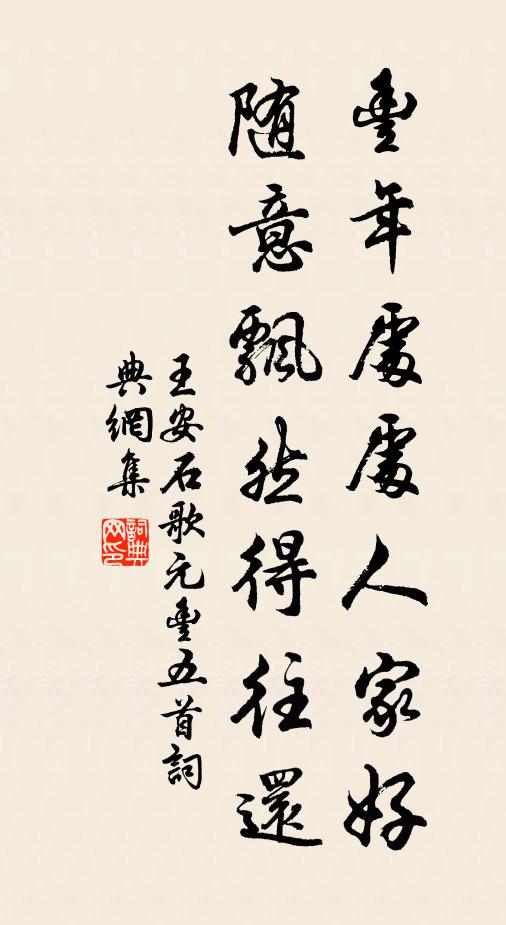 豐年處處人家好
隨意飄然得往還
王安石歌元豐五首詞
典網集
詞典網印